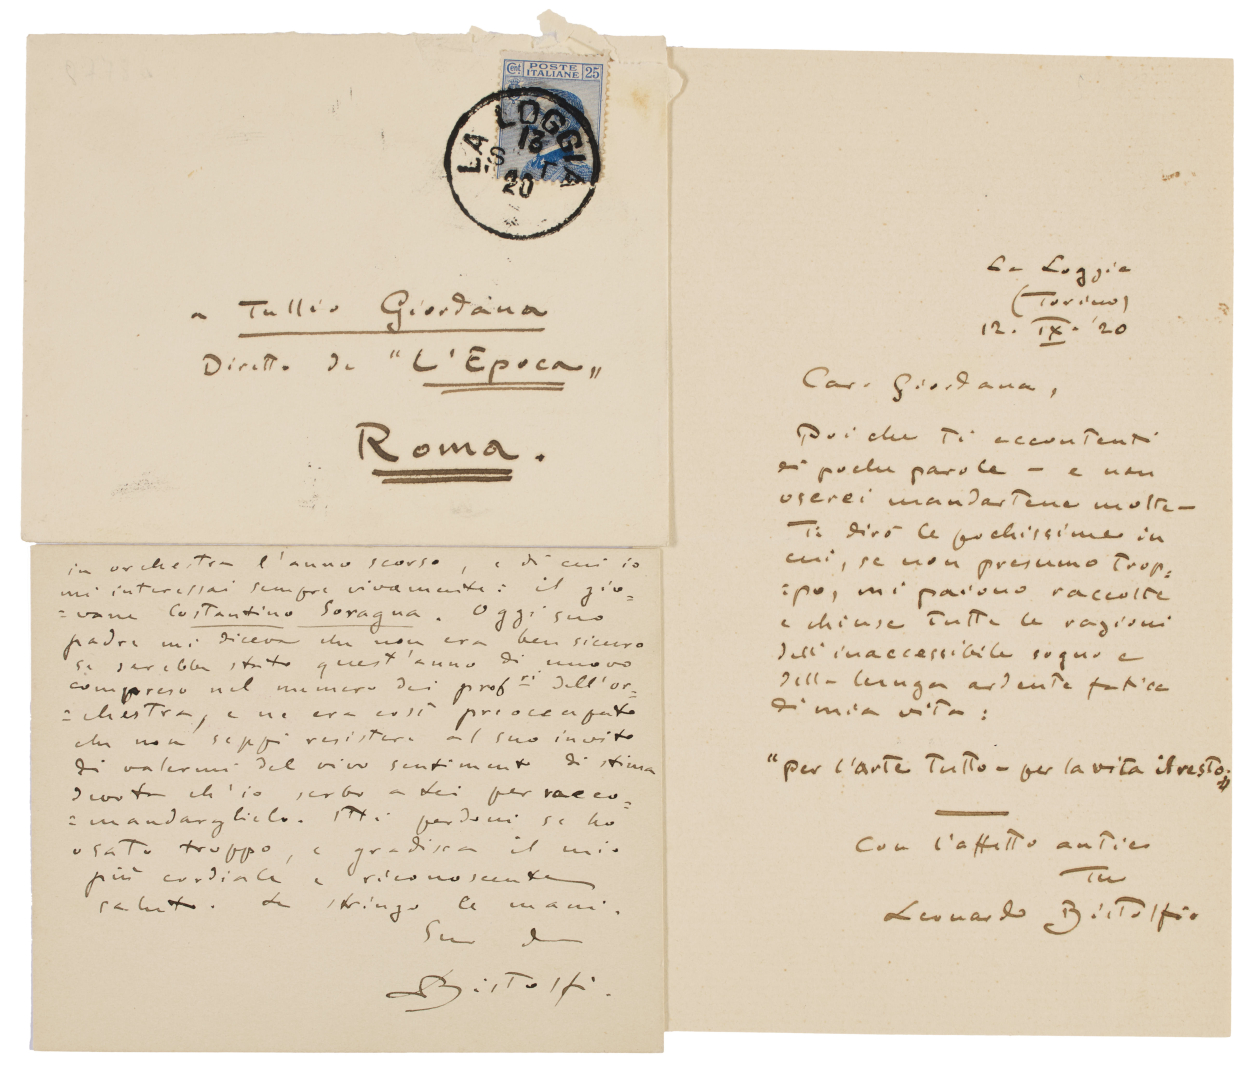 POSTE
ITALIANE
Cent. 25
LA LOGGIA
13
20
a Tullio Giordana
Direttr de "L'Epoca„
Roma.
in orchestra l'anno scorso, e di cui io
mi interessai sempre vivamente: il gio=
=vane Costantino Soragna. Oggi suo
padre mi diceva che non era ben sicuro
se sarebbe stato quest'anno di nuovo
compreso nel numero dei prof.ri dell'or=
=chestra, e ne era così preoccupato
che non seppi resistere al suo invito
di valermi del vivo sentimento di stima
devota ch'io serbo a Lei per racco=
=mandarglielo. Mi perdoni se ho
osato troppo, e gradisca il mio
più cordiale e riconoscente
saluto. Le stringo le mani.
Suo
LBistolfi.
La Loggia
(Torino)
12. IX. '20
Caro Giordana,
Poi che ti accontenti
di poche parole – e non
oserei mandartene molte –
Ti dirò le pochissime in
cui, se non presumo trop=
=po, mi paiono raccolte
e chiuse tutte le ragioni
dell'inaccessibile sogno e
della lunga ardente fatica
di mia vita:
"per l'arte tutto – per la vita il resto."
Con l'affetto antico
Tuo
Leonardo Bistolfi